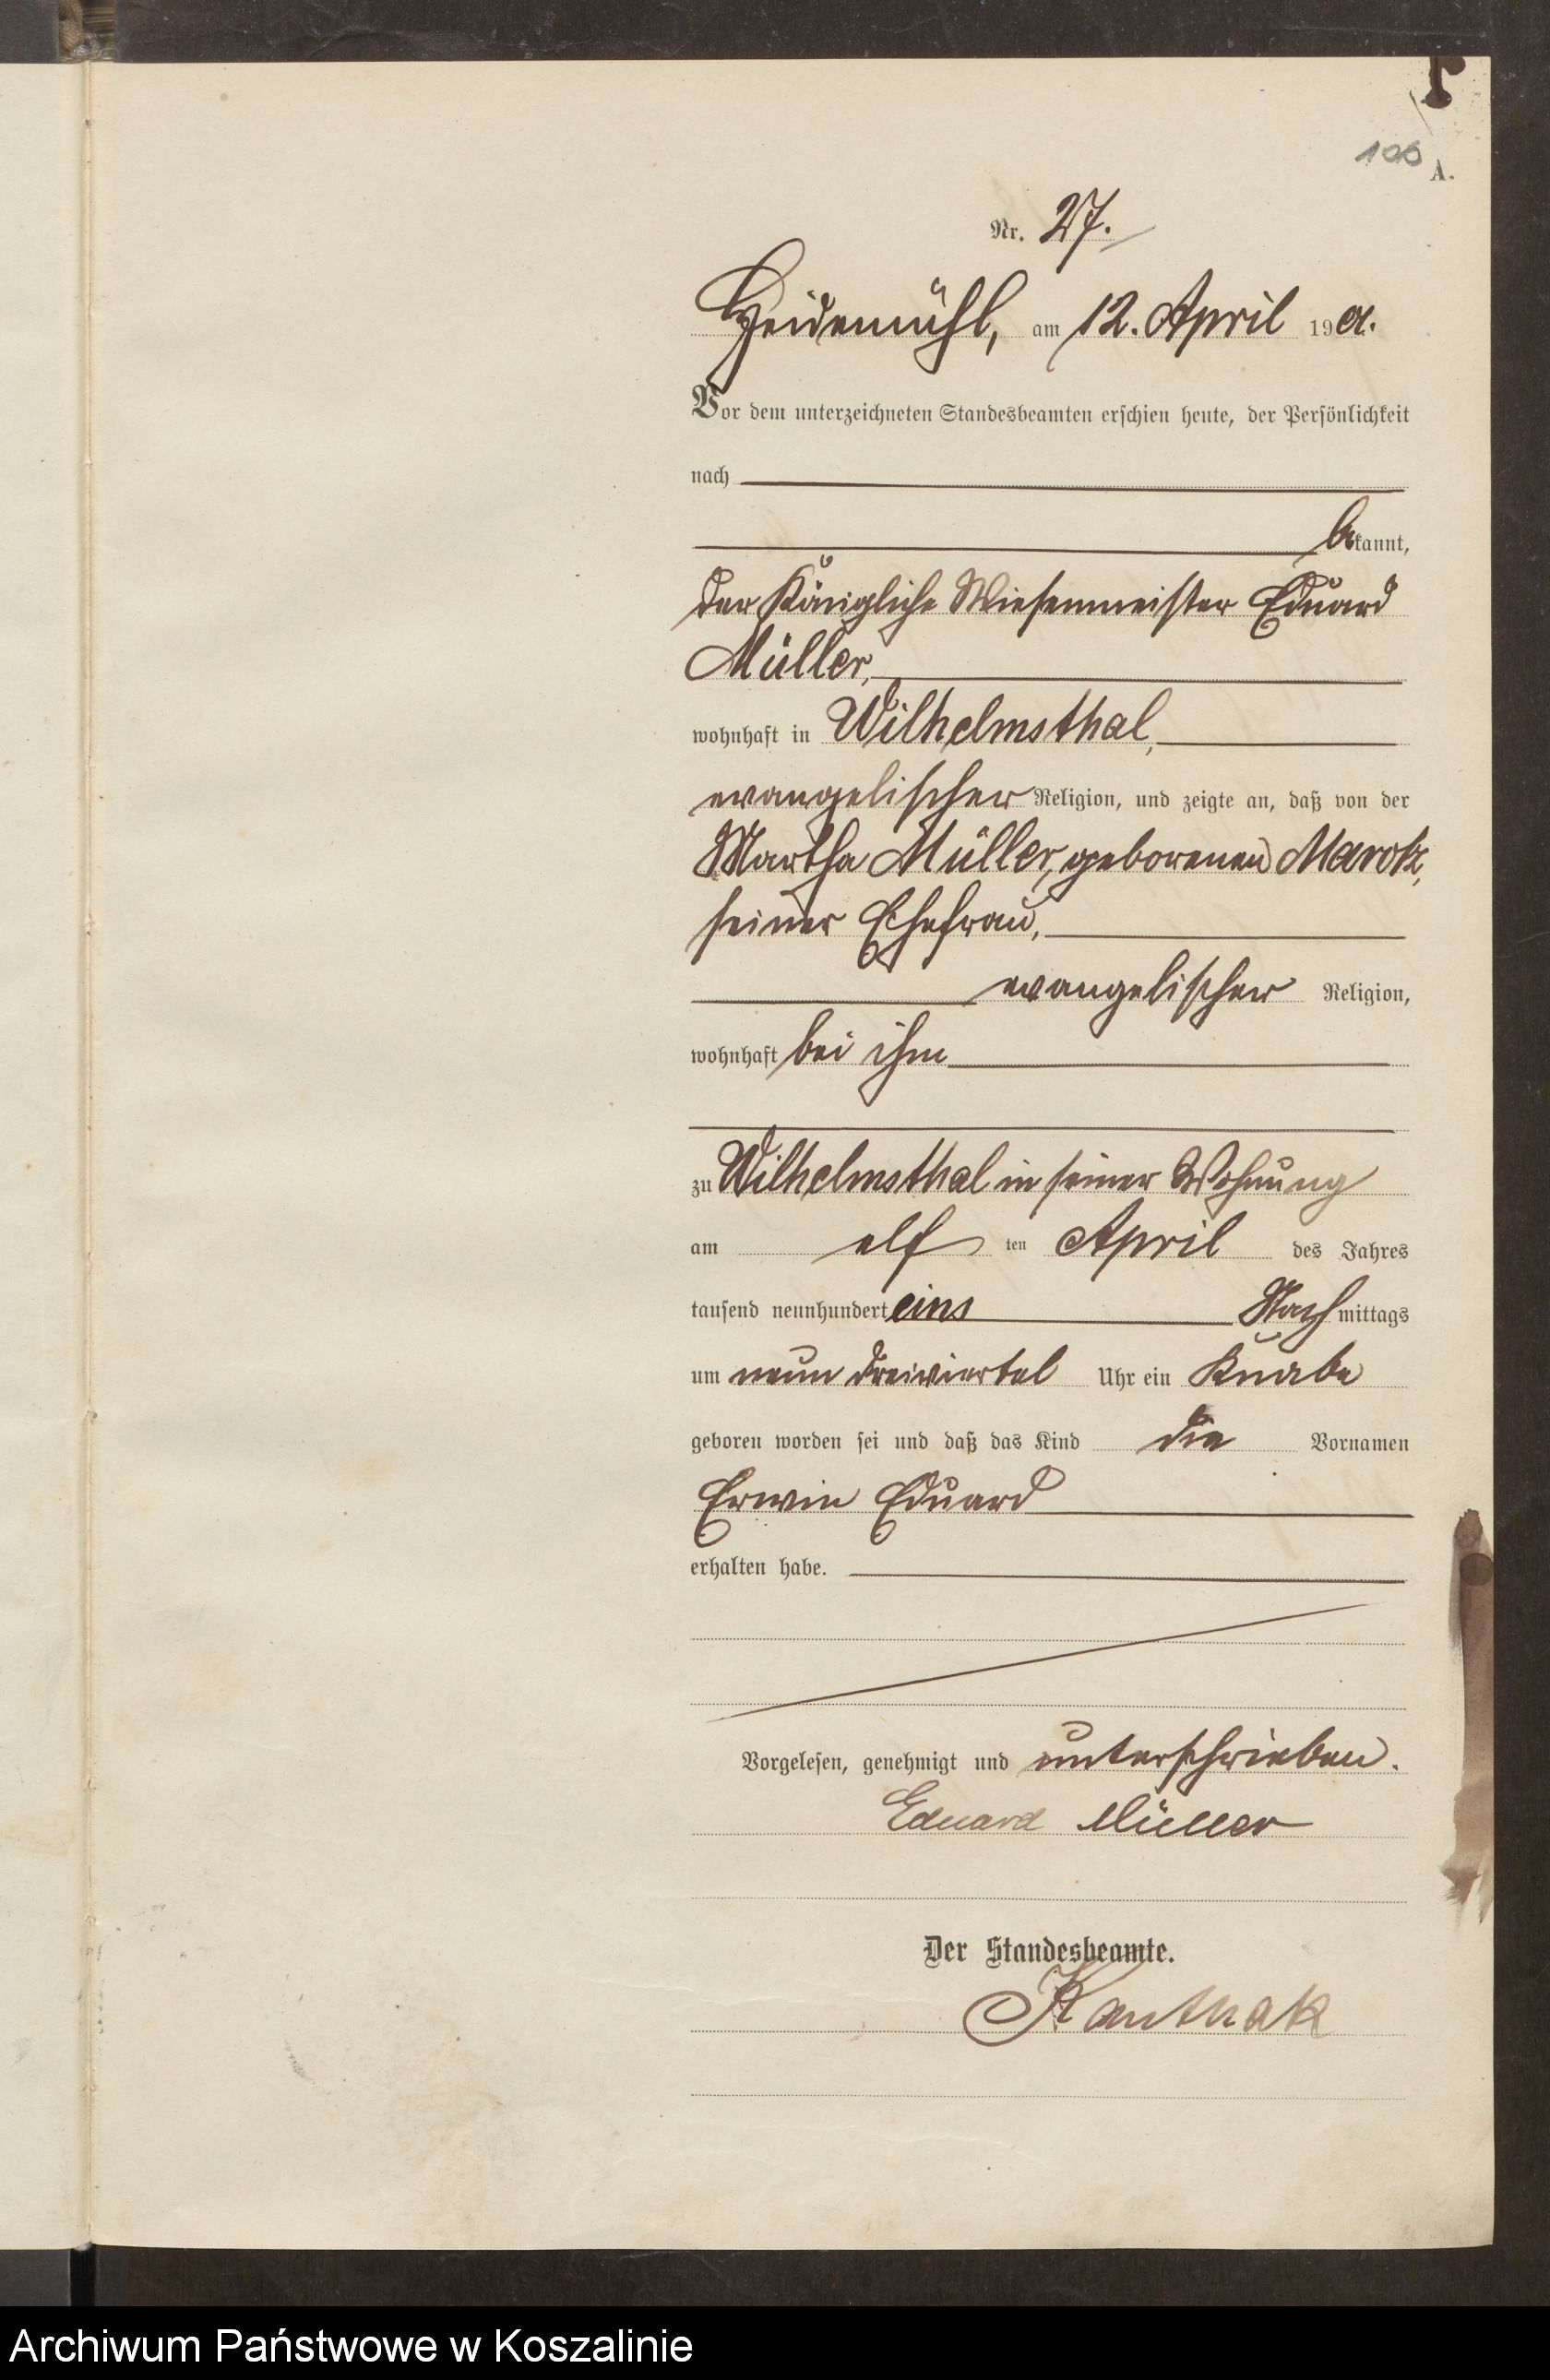 106
A.
Nr. 27.
Heidemühl, am 12. April 1901.
Vor dem unterzeichneten Standesbeamten erschien heute, der Persönlichkeit
nach
bekannt,
der Königliche Wiesenmeister Eduard
Müller,
wohnhaft in Wilhelmsthal,
evangelischer Religion, und zeigte an, daß von der
Martha Müller, geborenen Marotz,
seiner Ehefrau,
evangelischer Religion,
wohnhaft bei ihm
zu Wilhelmsthal in seiner Wohnung
am elf ten April des Jahres
tausend neunhundert eins Nachmittags
um neun dreiviertel Uhr ein Knabe
geboren worden sei und daß das Kind die Vornamen
Erwin Eduard
erhalten habe.
Vorgelesen, genehmigt und unterschrieben.
Eduard Müller
Der Standesbeamte.
Kanthak
Archiwum Państwowe w Koszalinie